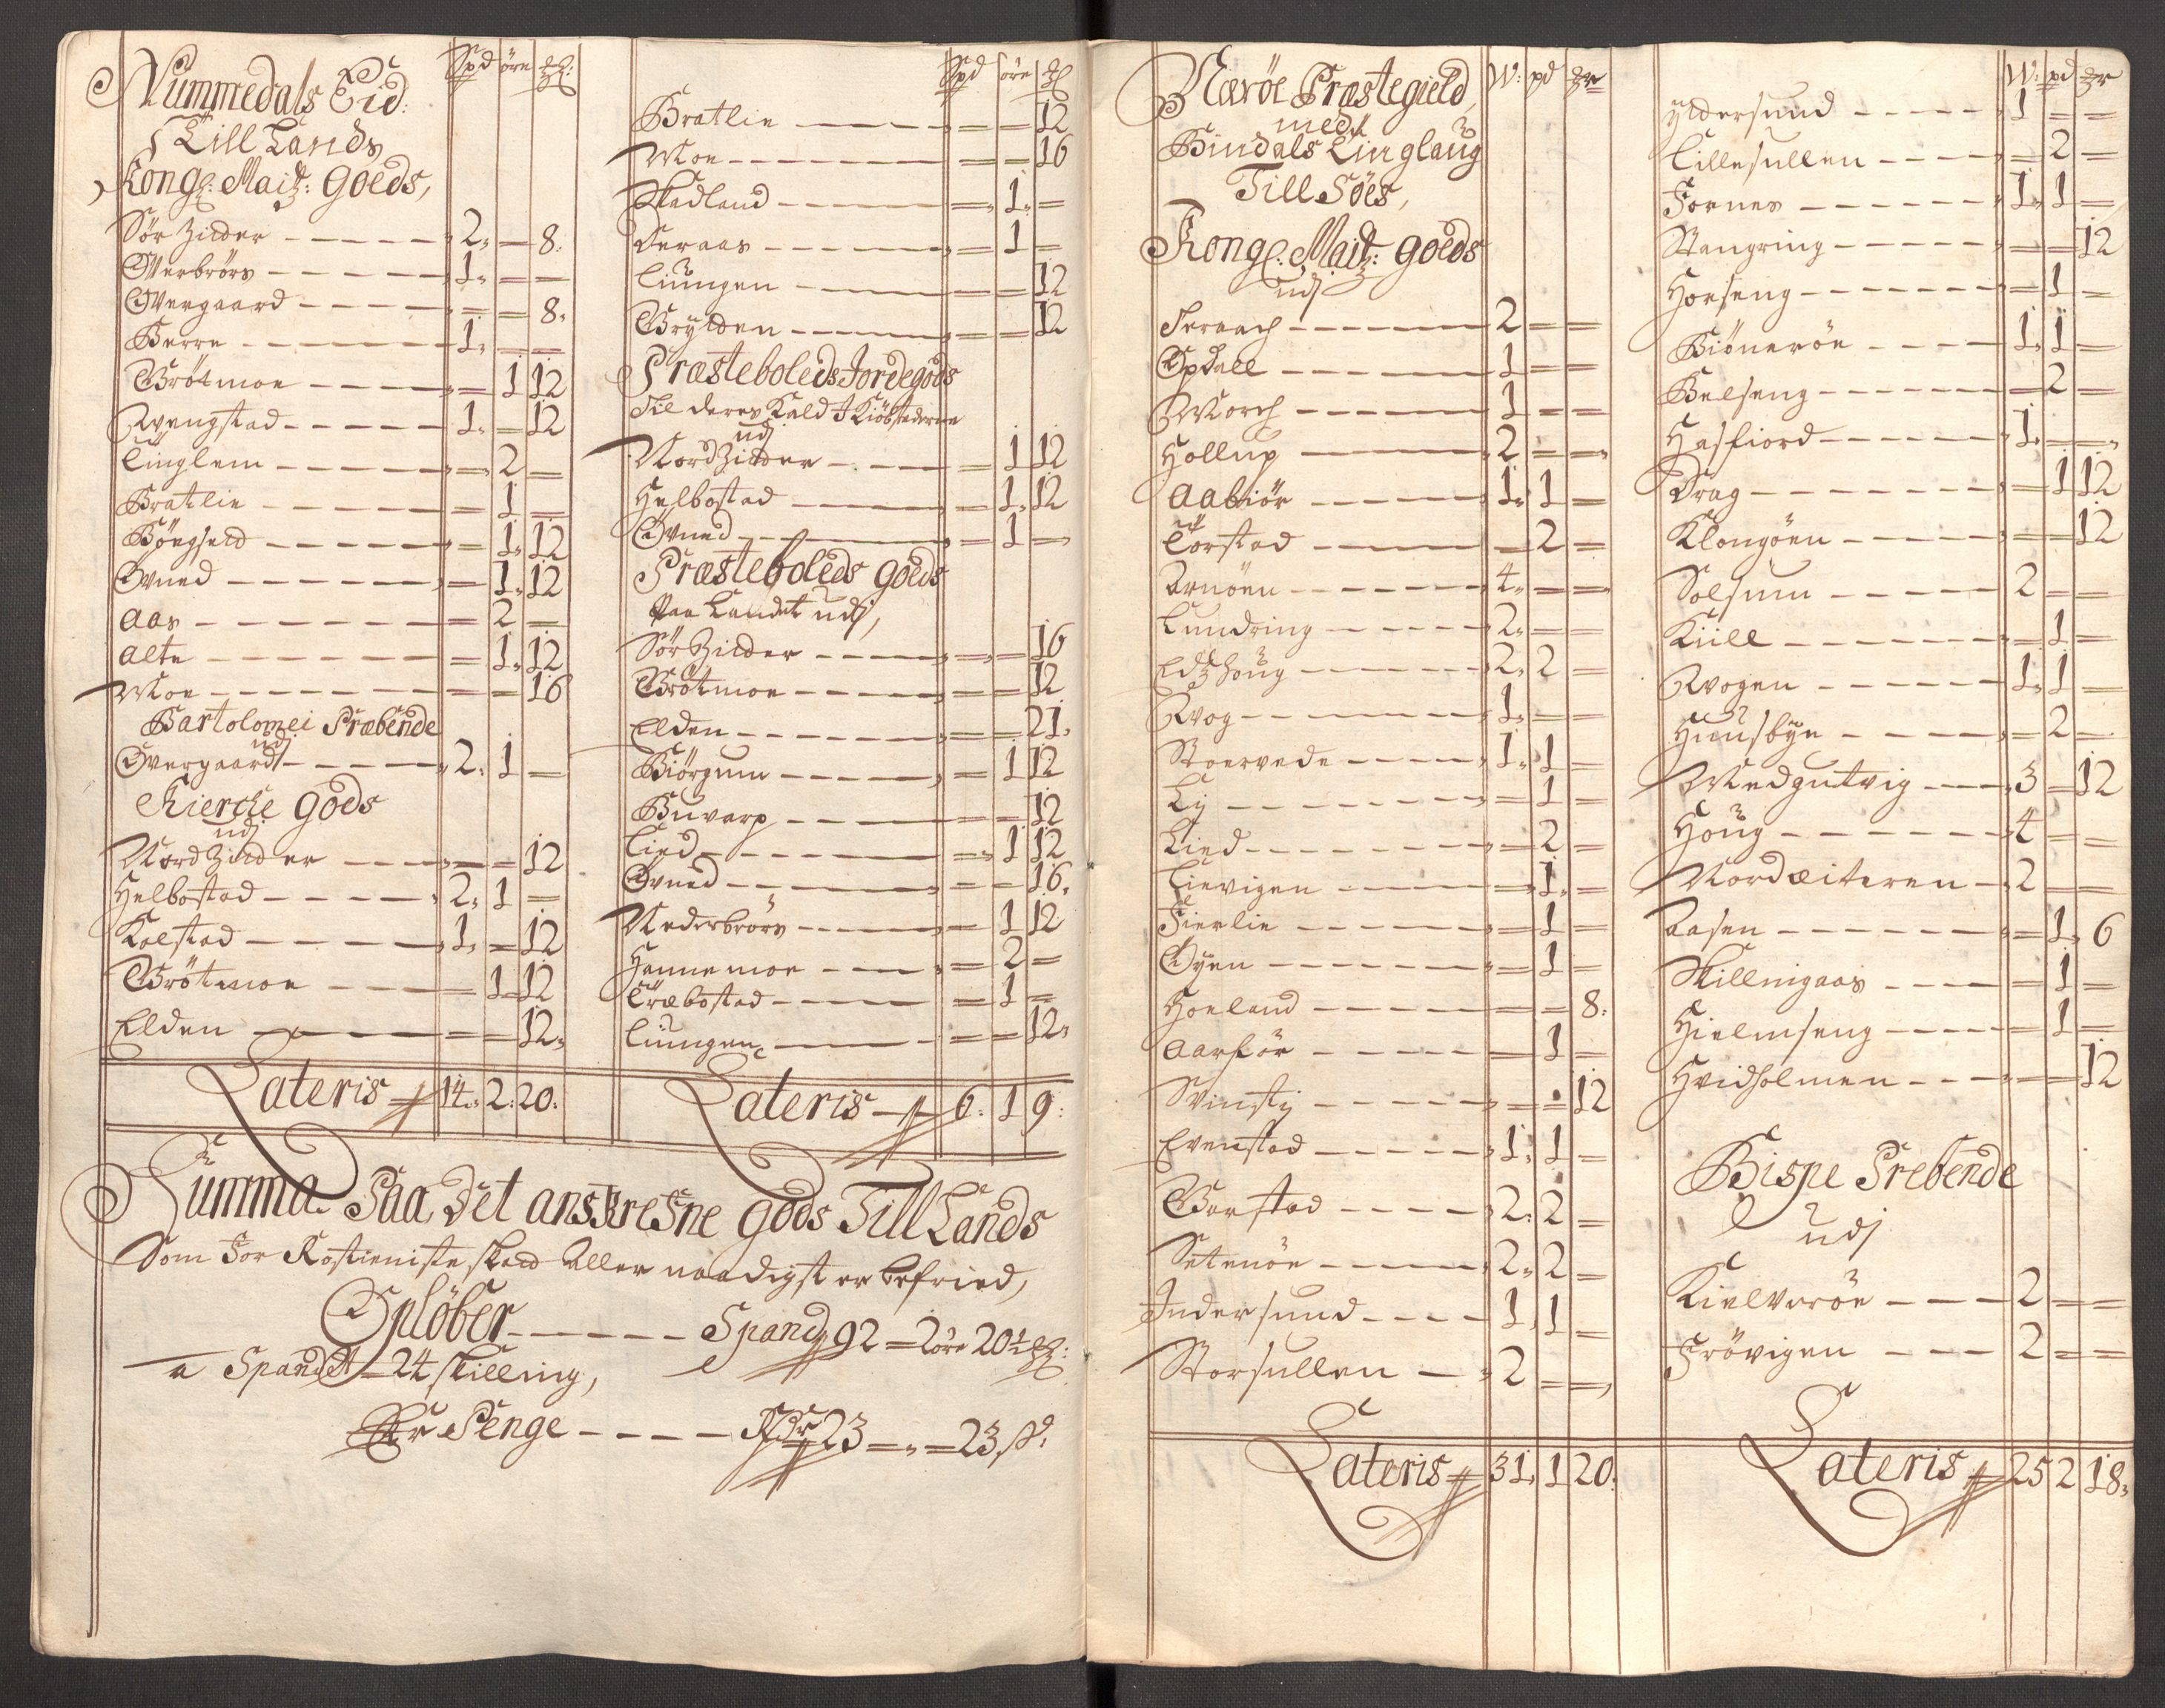 Nummedals Eid
Till Lands
Kong: Maits: Goeds,
Spd öre
Sör Zilder 2 = 8
Overbrörs 1 = =
Overgaard = = 8
Berre 1 = =
Grötmoe = 1 12
Avengstad 1 = 12
Linglem = 2 =
Bratlie = 1 =
Böngseid = 1 12
Ovned = 1 12
Aas = 2 =
Alte = 1 12
Moe = = 16
Bartolomei Præbende
udj
Overgaard 2 1 =
Kierche Gods
udj
Nord Zilder = = 12
Helbostad 2 1 =
Kalstad 1 = 12
Grötmoe = 1 12
Elden = = 12
Lateris 14 2 20
Spd öre
Bratlie = = 12
Moe = = 16
Skadland = 1 =
Deraas = 1 =
Liungen = = 12
Grylden = = 12
Præsteboleds Jordegods
Til deres Kald I Kiöbstederne
udj
Nord Zilder = 1 12
Helbostad = 1 12
Ovned = 1 =
Præsteboleds goeds
Paa Landet udj,
Sör Zilder = = 16
Grötmoe = = 12
Elden = = 21
Biörgum = 1 12
Buvarp = = 12
Lied = 1 12
Ovned = = 16
Nederbrörs = 1 12
Hannemoe = 2 =
Træbostad = 1 =
Liungen = = 12
Lateris 6 1 9
Summa Paa det anskrefne gods Till Lands
Som For Rostieniste skat Aller naadigst er befried,
Oplöber Spand 92 = 2 öre 20½
a Spandet 24 skilling,
Er Penge Rdr 23 = 23 s.
Næröe Præstegield
med
Bindals Tinglaug
Till Söes,
Kong: Maits: goeds
udj
W: pd
Terraach 2 = =
Opdall 1 = =
Morch 1 = =
Hollup 2 = =
Aabiör 1 1 =
Torstad = 2 =
Arnöen 4 = =
Lundring 2 = =
Edshoug 2 2 =
Avog 1 = =
Storvede 1 1 =
Ly = 1 =
Lied = 2 =
Lievigen = 1 =
Fierlie = 1 =
Øyen = 1 =
Horland = = 8
Aarflör = 1 =
Svinsty = = 12
Evenstad 1 1 =
Varstad 2 2 =
Setenöe 2 2 =
Indersund 1 1 =
Storsullen 2 = =
Lateris 31 1 20
W: pd
Yldersund 1 = =
Lillesullen = 2 =
Fornes 1 1 =
Stangring = = 12
Horseng = 1 =
Biöneröe 1 1 =
Helseng = 2 =
Hasfiord 1 = =
Drag = 1 12
Klongöen = = 12
Solsum 2 = =
Kiill = 1 =
Avogen 1 1 =
Huusbye = 2 =
Medgutvig 3 = 12
Houg 4 = =
Nordæiteren 2 = =
Aasen = 1 6
Skillingaas = 1 =
Hielmseng = 1 =
Hvidholmen = = 12
Bispe Prebende
udj
Kielveröe 2 = =
Frövigen 2 = =
Lateris 25 2 18